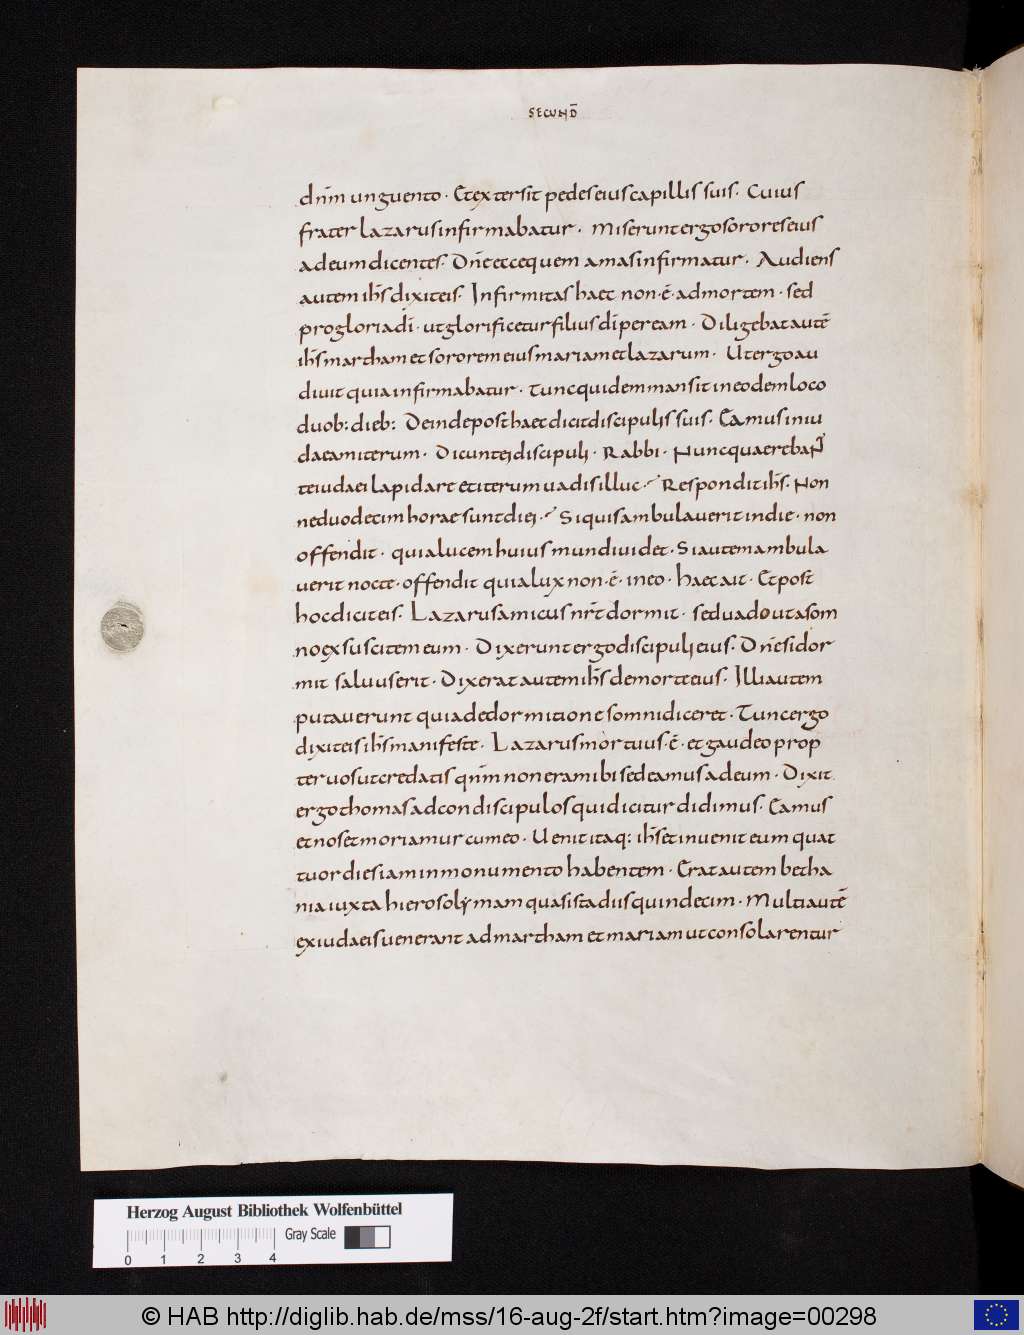 SECUND̄
dn̄m unguento · Et extersit pedes eius capillis suis · Cuius
frater lazarus infirmabatur · Miserunt ergo sorores eius
ad eum dicentes · Dn̄e ecce quem amas infirmatur · Audiens
autem ih̄s dixit eis · Infirmitas haec non · ē · ad mortem · sed
pro gloria dī · ut glorificetur filius dī per eam · Diligebat autē
ih̄s martham et sororem eius mariam et lazarum · Ut ergo au
diuit quia infirmabatur · tunc quidem mansit in eodem loco
duob: dieb: Deinde post haec dicit discipulis suis · Eamus in iu
daeam iterum · Dicunt ei discipuli · Rabbi · Nunc quaerebant
te iudaei lapidare et iterum uadis illuc · Respondit ih̄s · Non
ne duodecim horae sunt diei · Si quis ambulauerit in die · non
offendit · quia lucem huius mundi uidet · Si autem ambula
uerit nocte · offendit quia lux non · ē · in eo · haec ait · Et post
hoc dicit eis · Lazarus amicus nr̄ dormit · sed uado ut a som
no exsuscitem eum · Dixerunt ergo discipuli eius · Dn̄e si dor
mit saluus erit · Dixerat autem ih̄s de morte eius · Illi autem
putauerunt quia de dormitione somni diceret · Tunc ergo
dixit eis ih̄s manifeste · Lazarus mortuus · ē · et gaudeo prop
ter uos ut credatis qn̄m non eram ibi sed eamus ad eum · Dixit
ergo thomas ad condiscipulos qui dicitur didimus · Eamus
et nos et moriamur cum eo · Uenit itaq: ih̄s et inuenit eum quat
tuor dies iam in monumento habentem · Erat autem betha
nia iuxta hierosolymam quasi stadiis quindecim · Multi autē
ex iudaeis uenerant ad martham et mariam ut consolarentur
Herzog August Bibliothek Wolfenbüttel
Gray Scale
0 1 2 3 4
© HAB http://diglib.hab.de/mss/16-aug-2f/start.htm?image=00298